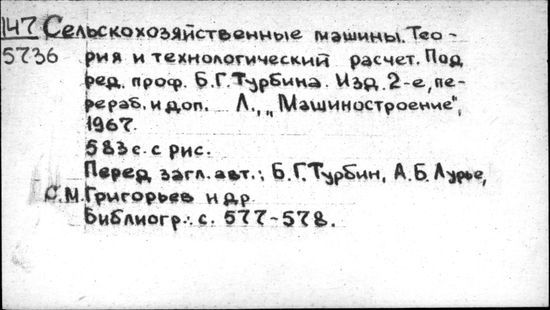 147 Сельскохозяйственные машины. Тео-
5736 рия и технологический расчет. Под
ред. проф. Б.Г.Турбина. Изд. 2-е, пе-
рераб. и доп. Л., „Машиностроение",
1967.
583 с. с рис.
Перед загл. авт.: Б.Г.Турбин, А.Б.Лурье,
С.М.Григорьев и др.
Библиогр.: с. 577-578.